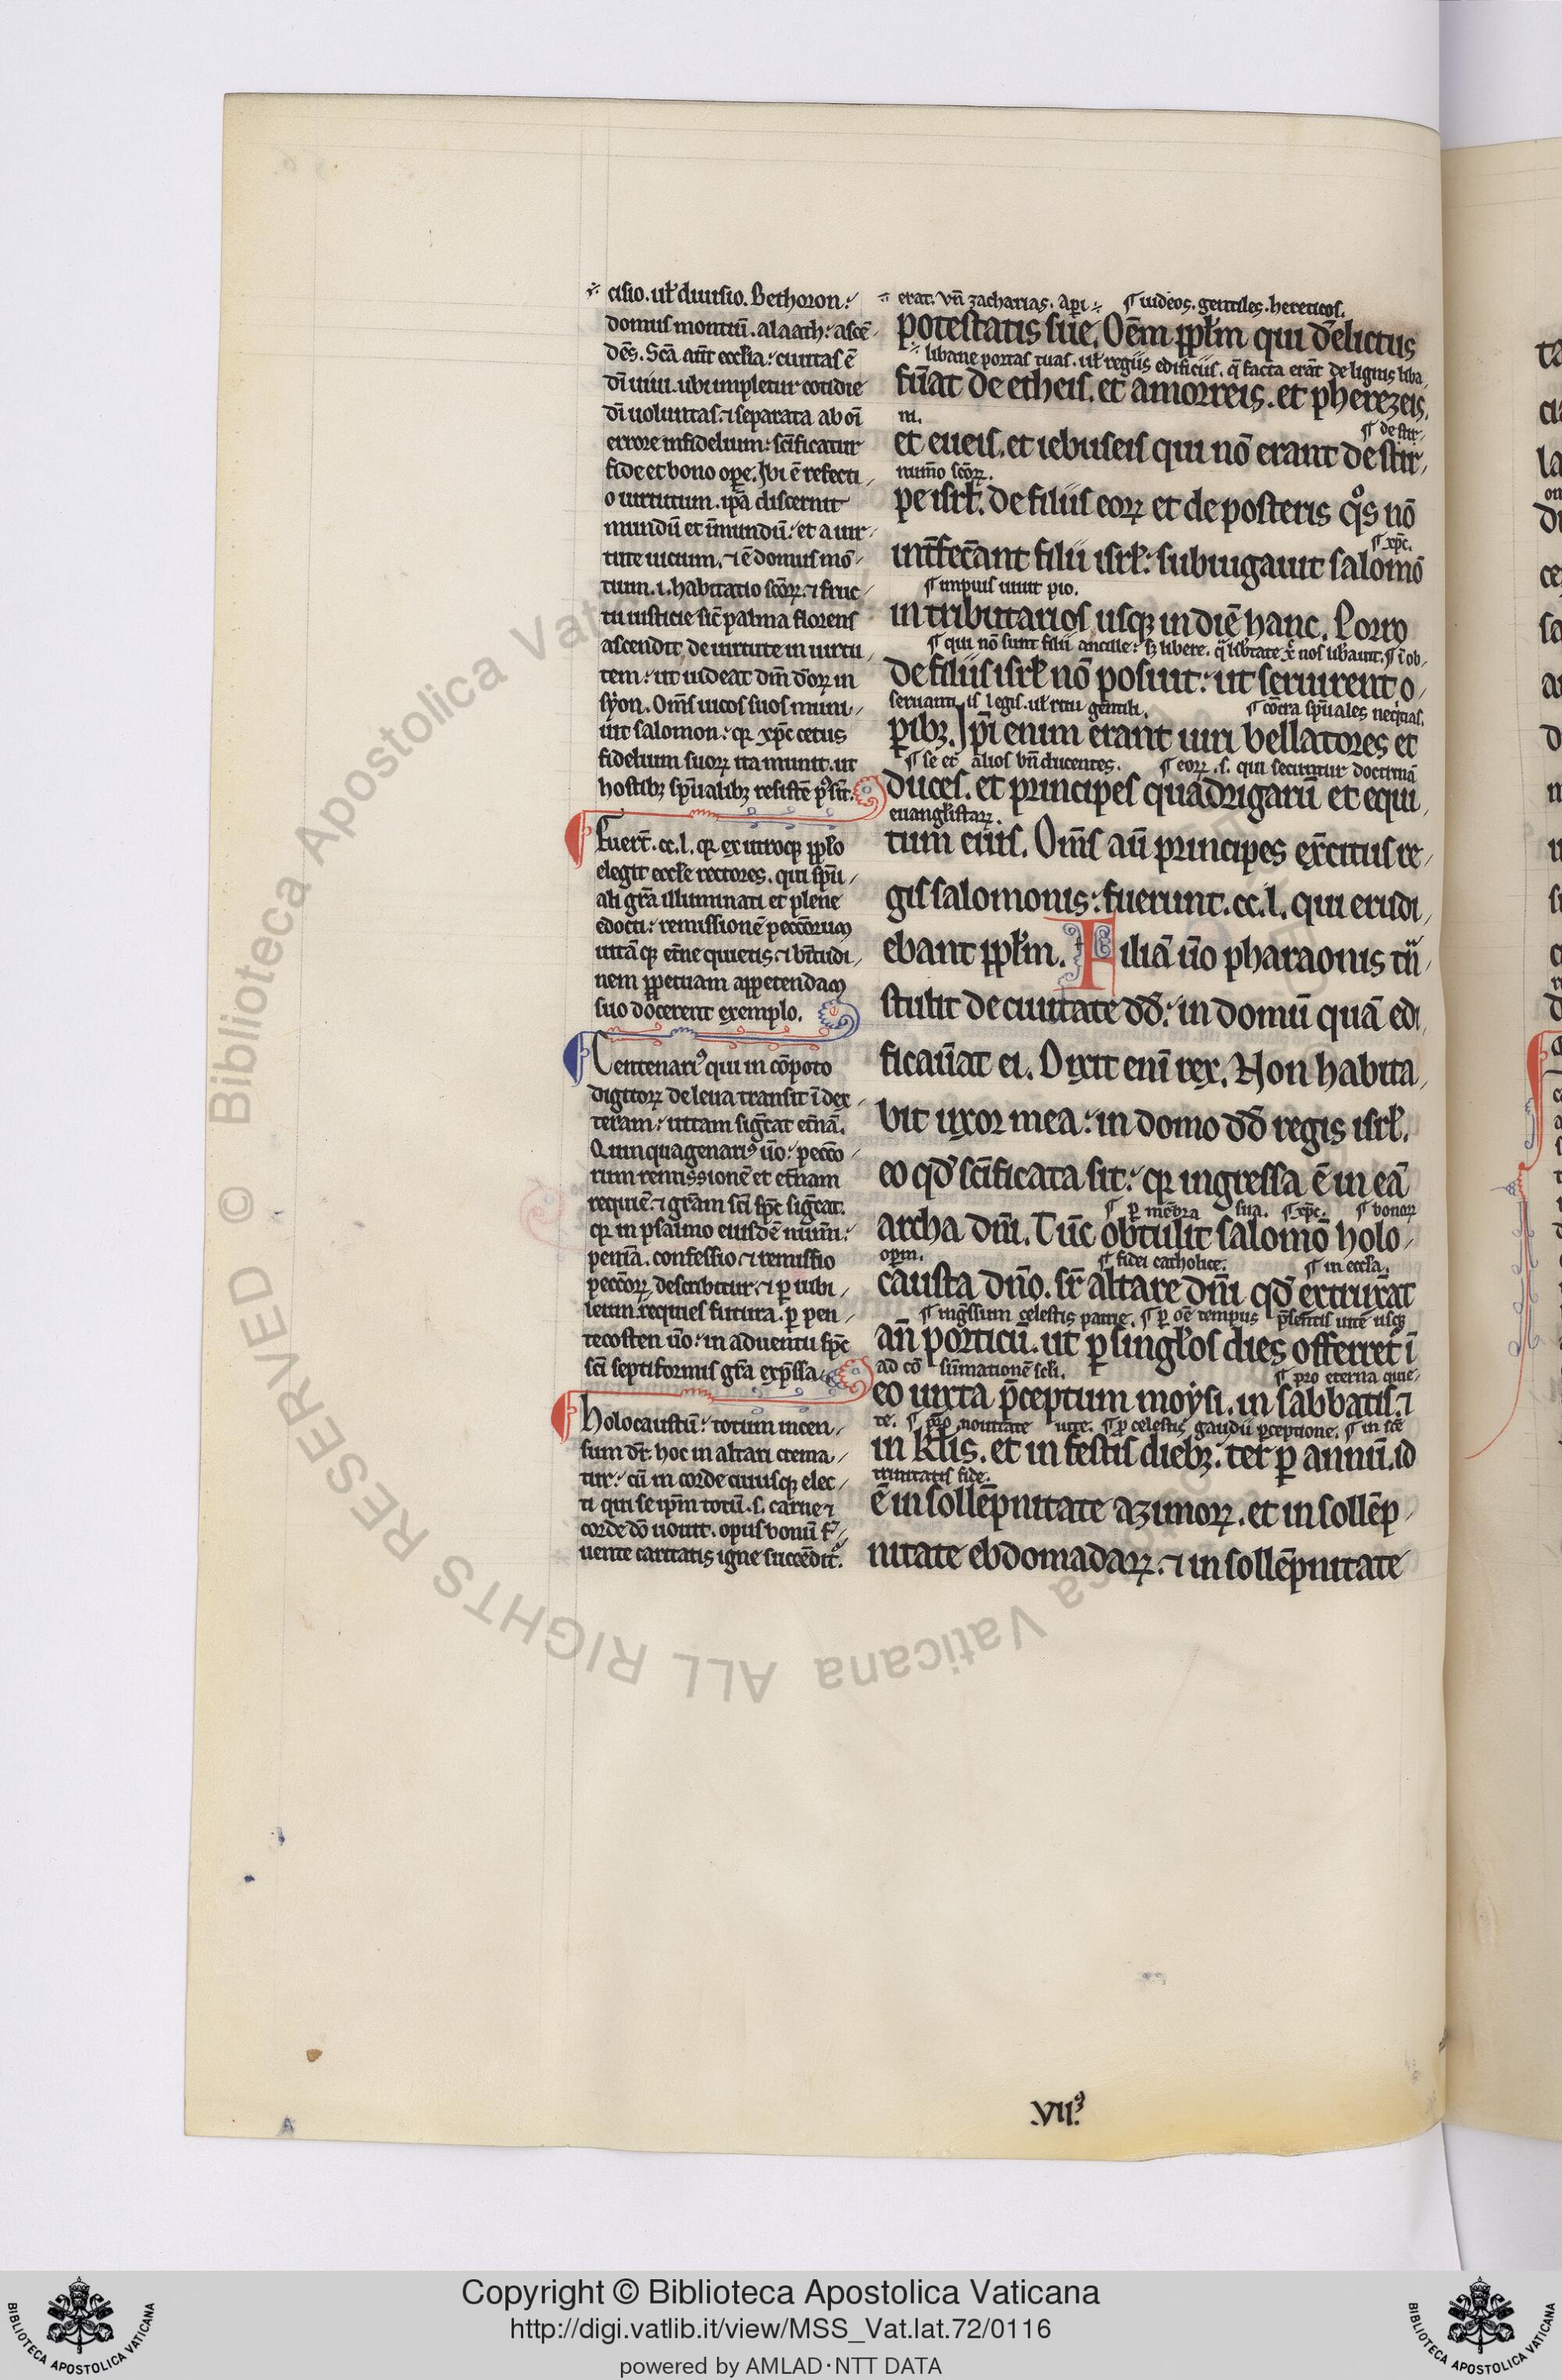 cisio. uł diuisio. Bethoron:
domus montiū. alaath: ascē
dēs. Scā aūt eccłia: ciuitas ē
dī uiui. ubi impletur cotidie
dī uoluntas. ⁊ separata ab oī
errore infidelium: scīficatur
fide et bono ope. Ibi ē refecti
o uirtutum. ipā discernit
mundū et īmundū: et a uir
tute uicium. ⁊ ē domus mō
tium. i. habitatio scōꝝ. ⁊ fruc
tu iusticie sic̄ palma florens
ascendit de uirtute in uirtu
tem: ut uideat dm̄ dōꝝ in
syon. Om̄s uicos suos muni
uit salomon: qꝛ xp̄c cetus
fidelium suoꝝ ita munit. ut
hostibꝫ sp̄ualibꝫ resistē
Fuerт̄. cc. l. qꝛ ex utroqꝫ pp̄lo
elegit eccłe rectores. qui sp̄u
ali grā illuminati et plene
edocti: remissionē peccōrum
uitāqꝫ et̄ne quietis. ⁊ btītudi
nem ꝑpetuam appetendam
suo docerent exemplo.
Centenariꝰ qui in cōpoto
digitoꝝ de leua transit ī dex
teram: uitam siḡcat et̄nā.
Quinquagenariꝰ ūo: peccō
rum remissionē et et̄nam
requiē. ⁊ grām scī sp̄c siḡcat.
qꝛ in psalmo eiusdē num̄i:
penīa. confessio. ⁊ remissio
peccōꝝ describitur. ⁊ ꝑ iubi
leum requies futura. ꝑ pen
tecosten ūo: in aduentu sp̄c
scī septiformis grā exp̄ssa.
Holocaustū: totum incen
sum dr̄. hoc in altari crema
tur: cū in corde cuiusqꝫ elec
ti qui se ip̄m totū. s. carne ⁊
corde dō uouit. opus bonū f̄
uente caritatis igne succēdit᷑.
erat. Vn̄ zacharias. Aꝑi ¶ iudeos. gentiles. hereticos.
potestatis sue. Oēm pp̄łm qui d̄elictus
libane portas tuas. uł regiis edificiis. q̄ facta erāt de lignis liba
fūat de etheis. et amorreis. et pherezeis.
ni. ¶ de stir
et eueis. et iebuseis qui nō erant de stir
nuīno scōꝝ.
pe isrł. de filiis eoꝝ et de posteris qͦs nō
¶ xp̄c.
int̄fec̄ant filii isrł: subiugauit salomō
¶ impius uiuit pio.
in tributarios usqꝫ in diē hanc. Porro
¶ qui nō sunt filii ancille: sꝫ libere. q̄ lib̄tate xͬ nos lib̄auit. ¶ ī ob
de filiis isrł nō posuit: ut seruirent o
seruantiis legis. uł ritu gentili. ¶ cōtra sp̄uales neq̇tias.
ꝑibꝫ. Ip̄i enim erant uiri bellatores et
¶ se et alios bn̄ ducentes. ¶ eoꝝ. s. qui secuntur doctrinā
duces. et principes quadrigarū et equi
euangłistaꝝ.
tum eius. Om̄s aū principes ex̄citus re
gis salomonis: fuerunt. cc. l. qui erudi
ebant pp̄łm. Filiā ūo pharaonis tͣ̄
stulit de ciuitate dd̄: in domū quā edi
ficaūat ei. Dixit enī rex. Non habita
bit uxor mea: in domo dd̄ regis isrł.
eo qd̄ scīficata sit: qꝛ ingressa ē in eā
¶ ꝑ mēbra sua. ¶ xp̄c. ¶ bonoꝝ
archa dn̄i. Tūc obtulit salomō holo
opm̄. ¶ fidei catholice. ¶ in eccłia.
causta dn̄o. sr̄ altare dn̄i qd̄ extrux̄at
¶ inḡssum celestis patrie. ¶ ꝑ oē tempus p̄sentis uite usqꝫ
an̄ porticū. ut ꝑ singłos dies offerret ī
ad cō sūmationē scłi. ¶ pro eterna quie
eo iuxta p̄ceptum moysi. in sabbatis. ⁊
te. ¶ ꝓ nouitate uite. ¶ ꝓ celestis gaudii ꝑceptione. ¶ in scē
in kłis. et in festis diebꝫ: ter ꝑ annū. id
trinitatis fide.
ē in sollēpnitate azimoꝝ. et in sollēp
nitate ebdomadaꝝ. ⁊ in sollēpnitate
VIIꝰ.
© Biblioteca Apostolica Vaticana ALL RIGHTS RESERVED
Copyright © Biblioteca Apostolica Vaticana
http://digi.vatlib.it/view/MSS_Vat.lat.72/0116
powered by AMLAD·NTT DATA
BIBLIOTECA APOSTOLICA VATICANA
BIBLIOTECA APOSTOLICA VATICANA